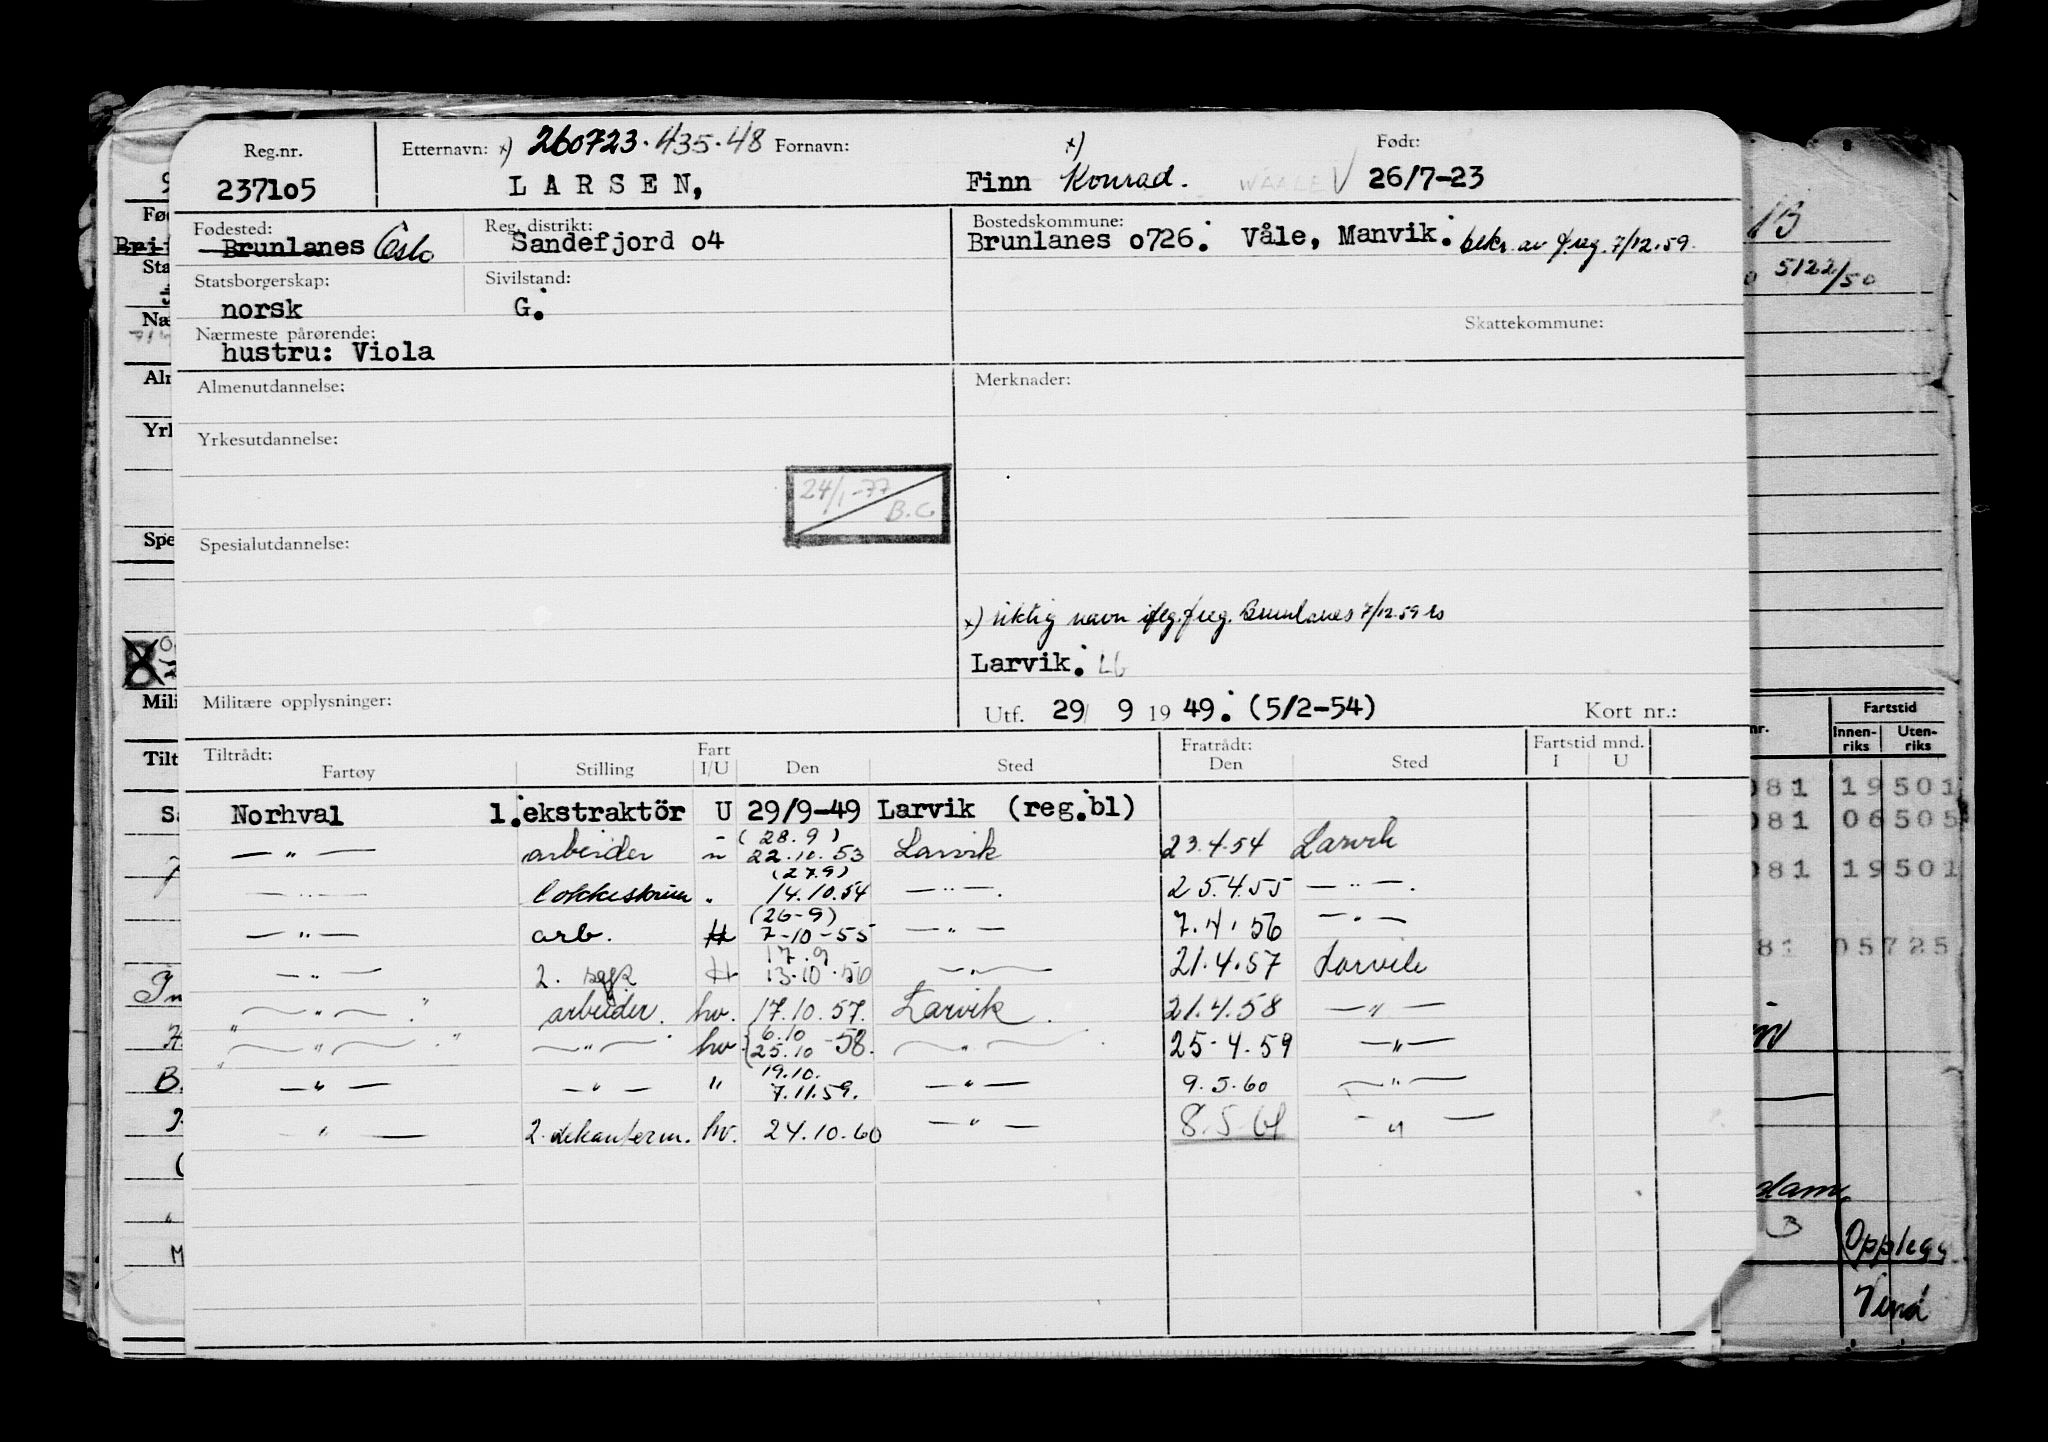 Reg.nr. Etternavn: x) 260723.435.48 Fornavn: x) Født:
237105 LARSEN, Finn Konrad. WAALE V 26/7-23
Fødested: Reg. distrikt: Bostedskommune:
Brunlanes Oslo Sandefjord o4 Brunlanes o726. Våle, Manvik. bekr. av f.reg. 7/12.59.
Statsborgerskap: Sivilstand:
norsk G.
Nærmeste pårørende: Skattekommune:
hustru: Viola
Almenutdannelse: Merknader:
Yrkesutdannelse:
24/1-77
B.G
Spesialutdannelse:
x) riktig navn iflg. f.reg. Brunlanes 7/12.59
Larvik. L6
Militære opplysninger: Utf. 29/ 9 19 49. (5/2-54) Kort nr.:
Tiltrådt: Fart Fratrådt: Fartstid mnd.
Fartøy Stilling I/U Den Sted Den Sted I U
Norhval 1.ekstraktör U 29/9-49 Larvik (reg.bl)
(28.9)
— " — arbeider " 22.10.53 Larvik 23.4.54 Larvik
(27.9)
— " — " 14.10.54 — " —. 25.4.55 — " —.
(26-9)
— " — arb. H 7-10-55 — " — 7.4.56 — " —
17.9
— " — 2. H 13.10.56 — " — 21.4.57 Larvik
— " — arbeider. hv. 17.10.57. Larvik. 21.4.58 — " —
6.10
— " — — " — hv. 25.10 -58. — " — 25-4.59 — " —
19.10.
— " — — " — " 7.11.59. — " — 9.5.60 — " —
" — 2. dekanterm. hv. 24.10.60 — " — 8.5.61 — " —
5122/50
nr. Fartstid
Innen-riks Uten-riks
081 19501
081 06505
081 19501
81 05725
B
Opplegg